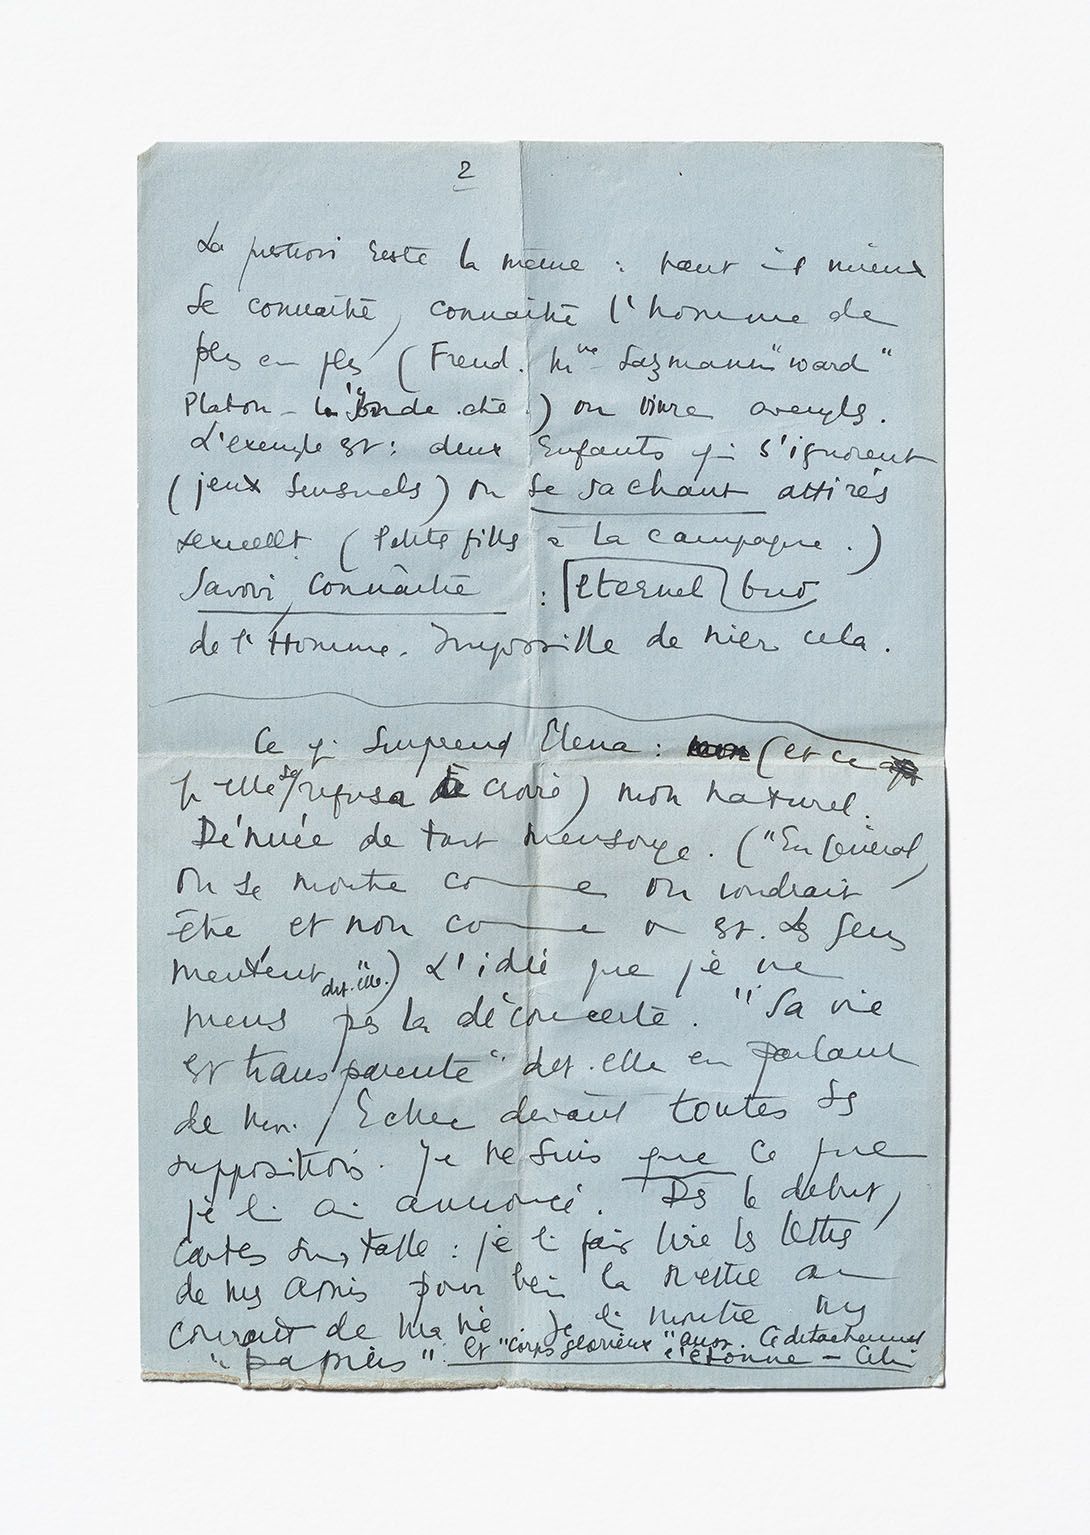 2
La question reste la même : vaut il mieux
se connaître, connaître l'homme de
plus en plus (Freud. Mme Salzmann "ward"
Platon - ) ou vivre aveugle.
L'exemple est : deux enfants qui s'ignorent
(jeux sensuels) ou se sachant attirés
sexuellt (Petite fille à la campagne.)
Savoir, connaître : éternel but
de l'Homme. Impossible de nier cela.
Ce qui surprend Elena : (et ce
qu'elle se refusa à croire) mon naturel.
Dénuée de tout mensonge. ("En général,
on se montre comme on voudrait
être et non comme on est. Les gens
mentent" dit-elle.) L'idée que je ne
mens pas la déconcerte. "Sa vie
est transparente" dit-elle en parlant
de moi. / Echec devant toutes ses
suppositions. Je ne suis que ce que
je lui ai annoncé. Dès le début,
cartes sur table : je lui fais lire les lettres
de mes amis pour bien la mettre au
courant de ma vie. Je lui montre mes
"papiers". et "corps glorieux" aussi. Ce détachement
l'étonne - Celui